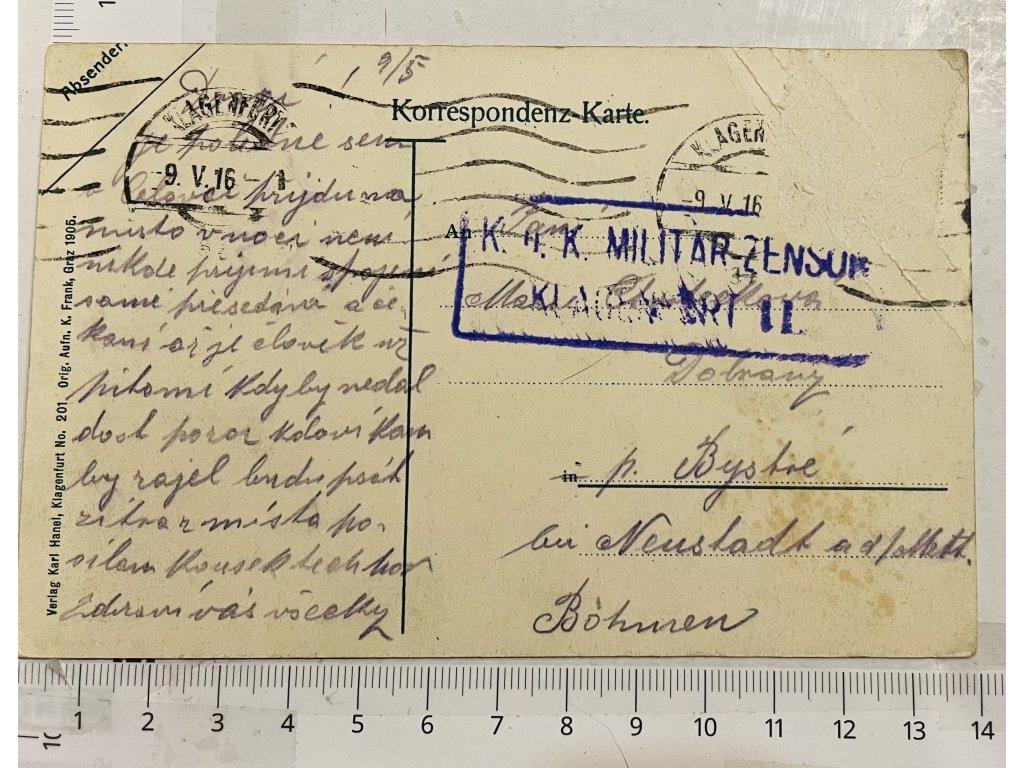 Absender:
9/5
Korrespondenz-Karte.
KLAGENFURT
-9. V. 16 - 1
KLAGEN
-9. V. 16
je poledne sem
v Celovci prijdu na
místo v noci není
nikde prijemi spojení
samé přesedáná a če
kaní až je člověk už
pitomí kdyby nedal
dost pozor kdoví kam
by zajel budu psát
zítra z místa po-
sílam kousek tech hor
Zdraví vás všecky
An Paní
K. u. K. MILITÄR-ZENSUR
KLAGENFURT II.
Marie
Dobrany
in p. Bystré
bei Neustadt a d/Mett.
Böhmen
Verlag Karl Hanel, Klagenfurt No. 201. Orig. Aufn. K. Frank, Graz 1905.
1 2 3 4 5 6 7 8 9 10 11 12 13 14
10